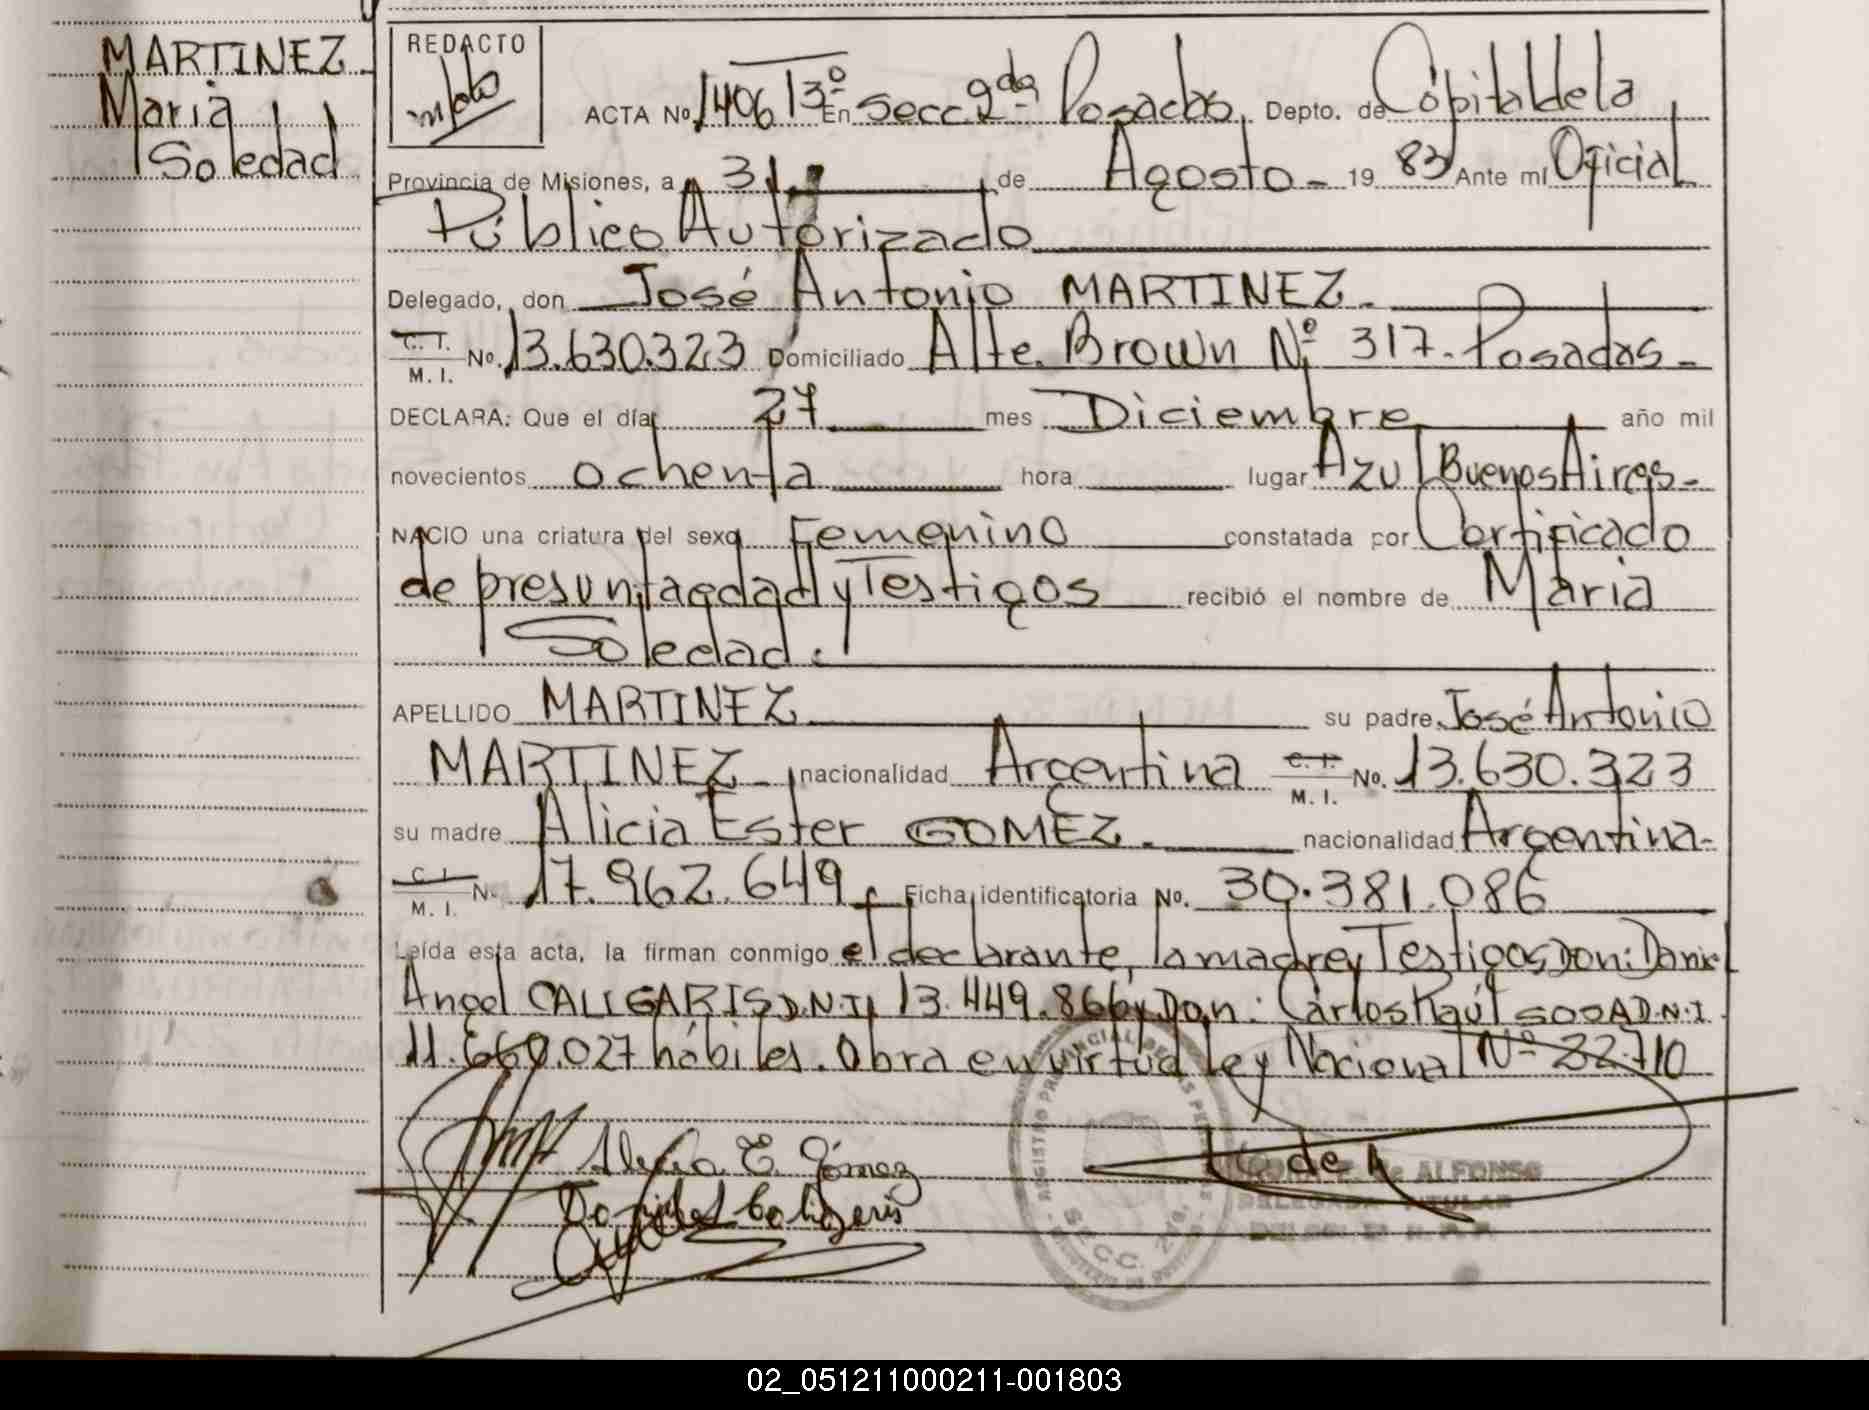 MARTINEZ
Maria
Soledad
REDACTO
ACTA No 1406 T3º En Secc 2da Posadas, Depto. de Capital de la
Provincia de Misiones, a 31 de Agosto - 19 83 Ante mi Oficial
Público Autorizado
Delegado, don José Antonio MARTINEZ.
C. I.
M. I.
No. 13.630.323 Domiciliado Alte. Brown Nº 317. Posadas -
DECLARA: Que el día 27 mes Diciembre año mil
novecientos ochenta hora lugar Azul Buenos Aires -
NACIO una criatura del sexo Femenino constatada por Certificado
de presunta edad y Testigos recibió el nombre de Maria
Soledad.
APELLIDO MARTINEZ su padre José Antonio
MARTINEZ - nacionalidad Argentina C. I. No. 13.630.323
M. I.
su madre Alicia Ester GOMEZ. nacionalidad Argentina -
C. I.
M. I.
N. 17.962.649 Ficha identificatoria No. 30.381.086
Leída esta acta, la firman conmigo el declarante, la madre y Testigos Don: Daniel
Angel CALIGARIS D.N.I. 13.449.866 y Don: Carlos Raúl SOSA D.N.I
11.660.027 hábiles. Obra en virtud Ley Nacional Nº 22.710
Alicia E. Gómez
Caligaris
REGISTRO PROVINCIAL DE LAS PERSONAS
SECC. 2da.
de ALFONSO
DELEGADA TITULAR
02_051211000211-001803